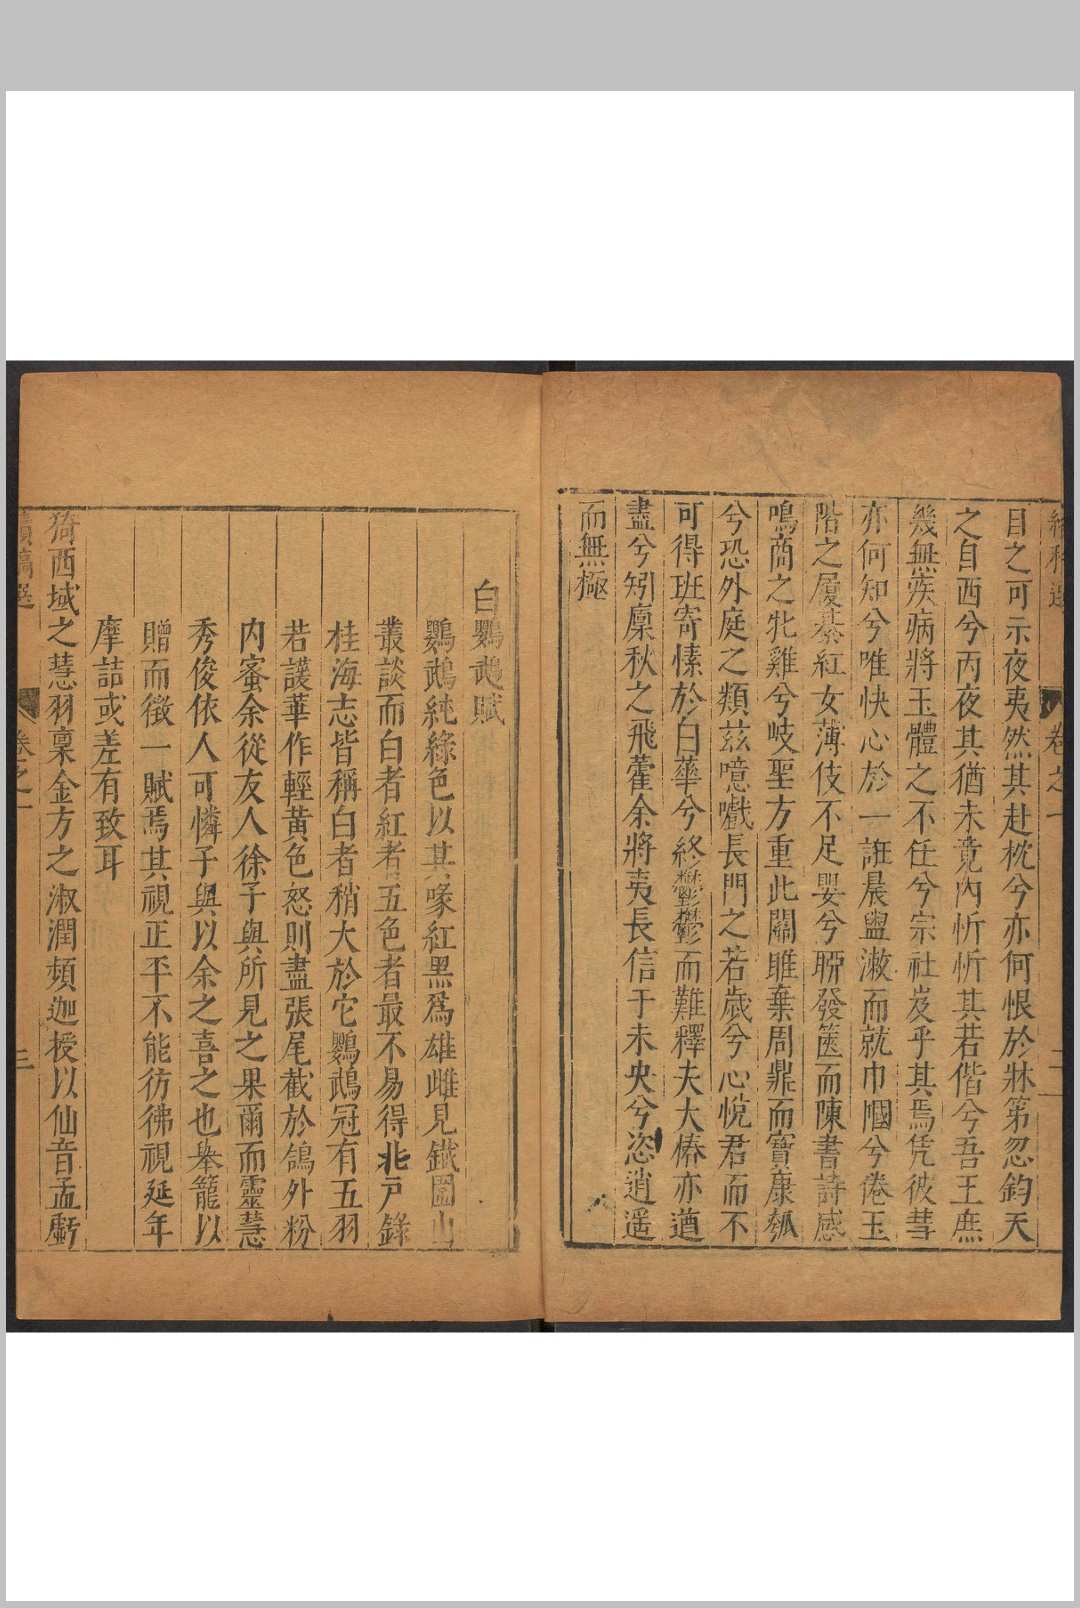 續稿選 卷之一 二
目之可示夜夷然其赴枕兮亦何恨於牀第忽鈞天
之自西兮丙夜其猶未竟內忻忻其若偕兮吾王庶
幾無疾病將玉體之不任兮宗社岌乎其焉凭彼彗
亦何知兮唯快心於一誑晨盥漱而就巾幗兮倦玉
階之履綦紅女薄伎不足嬰兮聊發篋而陳書詩感
鳴商之牝雞兮岐聖方重此關雎棄周鼎而寶康瓠
兮恐外庭之類茲噫嚱長門之若歲兮心悅君而不
可得班寄愫於白華兮終鬱鬱而難釋夫大椿亦遒
盡兮矧廩秋之飛藿余將夷長信于未央兮恣逍遥
而無極
白鸚鵡賦
鸚鵡純綠色以其喙紅黑爲雄雌見鐵圍山
叢談而白者紅者五色者最不易得北戸錄
桂海志皆稱白者稍大於它鸚鵡冠有五羽
若護華作輕黃色怒則盡張尾截於鴿外粉
内蜜余從友人徐子與所見之果爾而靈慧
秀俊依人可憐子與以余之喜之也舉籠以
贈而徵一賦焉其視正平不能彷彿視延年
摩詰或差有致耳
猗西域之慧羽稟金方之淑潤頻迦授以仙音孟虧
續稿選 卷之一 三